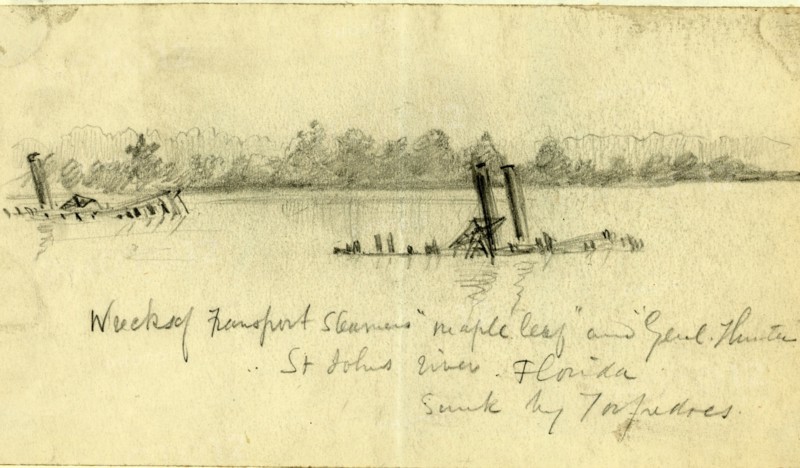 Wrecks of Transport Steamers "maple leaf" and Genl. Hunter
St Johns river. Florida
Sunk by Torpedoes.